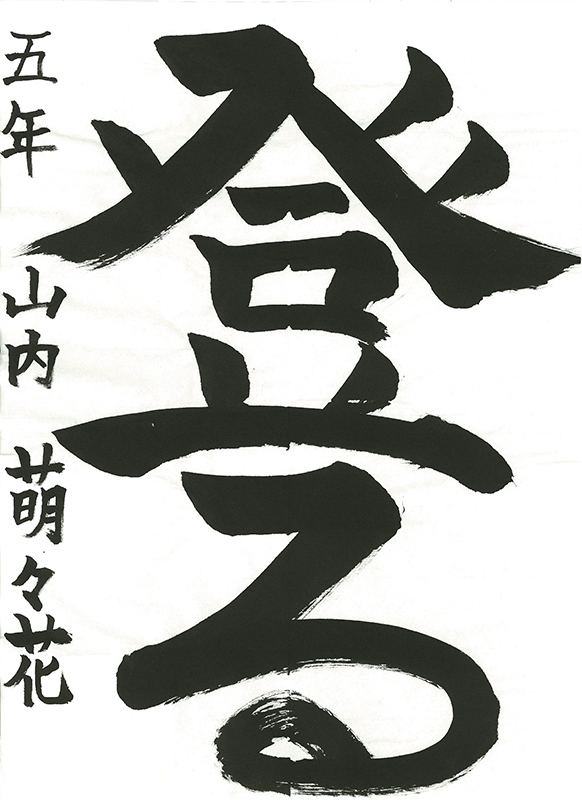 登る
五年 山内 萌々花